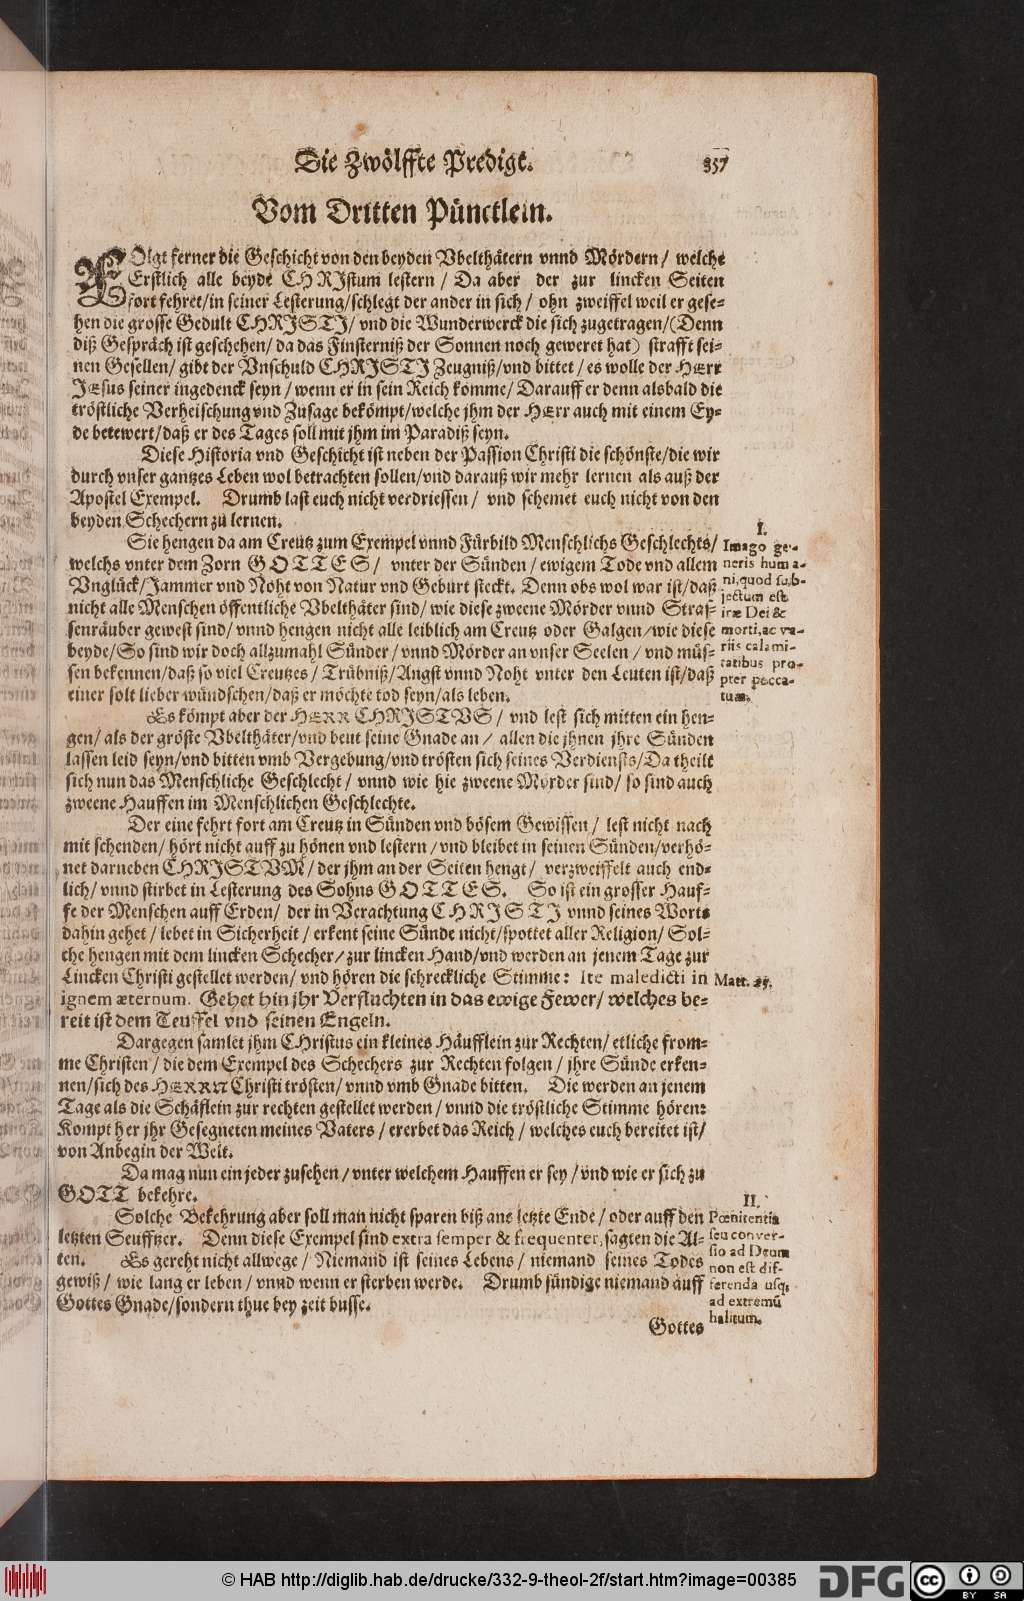 Die Zwölffte Predigt.
357
Vom Dritten Pünctlein.
FOlgt ferner die Geschicht von den beyden Vbelthätern vnnd Mördern / welche
Erstlich alle beyde CHRIstum lestern / Da aber der zur lincken Seiten
fort fehret/in seiner Lesterung/schlegt der ander in sich / ohn zweiffel weil er gese-
hen die grosse Gedult CHRISTI/ vnd die Wunderwerck die sich zugetragen/(Denn
diß Gespräch ist geschehen/ da das Finsterniß der Sonnen noch geweret hat) strafft sei-
nen Gesellen/ gibt der Vnschuld CHRISTI Zeugniß/vnd bittet / es wolle der HErr
JEsus seiner ingedenck seyn / wenn er in sein Reich komme/ Darauff er denn alsbald die
tröstliche Verheischung vnd Zusage bekömpt/welche jhm der HErr auch mit einem Ey-
de betewert/daß er des Tages soll mit jhm im Paradiß seyn.
Diese Historia vnd Geschicht ist neben der Passion Christi die schönste/die wir
durch vnser gantzes Leben wol betrachten sollen/vnd darauß wir mehr lernen als auß der
Apostel Exempel. Drumb last euch nicht verdriessen / vnd schemet euch nicht von den
beyden Schechern zu lernen.
Sie hengen da am Creutz zum Exempel vnnd Fürbild Menschlichs Geschlechts/
welchs vnter dem Zorn GOTTES/ vnter der Sünden/ ewigem Tode vnd allem
Vnglück/Jammer vnd Noht von Natur vnd Geburt steckt. Denn obs wol war ist/daß
nicht alle Menschen öffentliche Vbelthäter sind/ wie diese zweene Mörder vnnd Stras-
senräuber gewest sind/ vnnd hengen nicht alle leiblich am Creutz oder Galgen/wie diese
beyde/So sind wir doch allzumahl Sünder / vnnd Mörder an vnser Seelen / vnd müs-
sen bekennen/daß so viel Creutzes / Trübniß/Angst vnnd Noht vnter den Leuten ist/daß
einer solt lieber wündschen/daß er möchte tod seyn/als leben.
I.
Imago ge-
neris huma-
ni, quod sub-
jectum est
iræ Dei &
morti, ac va-
riis calami-
tatibus pro-
pter pecca-
tum.
Es kömpt aber der HERR CHRISTVS / vnd lest sich mitten ein hen-
gen/ als der gröste Vbelthäter/vnd beut seine Gnade an / allen die jhnen jhre Sünden
lassen leid seyn/vnd bitten vmb Vergebung/vnd trösten sich seines Verdiensts/Da theilt
sich nun das Menschliche Geschlecht/ vnnd wie hie zweene Mörder sind/ so sind auch
zweene Hauffen im Menschlichen Geschlechte.
Der eine fehrt fort am Creutz in Sünden vnd bösem Gewissen / lest nicht nach
mit schenden/ hört nicht auff zu hönen vnd lestern / vnd bleibet in seinen Sünden/verhö-
net darneben CHRISTVM / der jhm an der Seiten hengt/ verzweiffelt auch end-
lich/ vnnd stirbet in Lesterung des Sohns GOTTES. So ist ein grosser Hauf-
fe der Menschen auff Erden/ der in Verachtung CHRISTI vnnd seines Worts
dahin gehet / lebet in Sicherheit / erkent seine Sünde nicht/spottet aller Religion/ Sol-
che hengen mit dem lincken Schecher/ zur lincken Hand/vnd werden an jenem Tage zur
Lincken Christi gestellet werden/ vnd hören die schreckliche Stimme: Ite maledicti in
ignem æternum. Gehet hin jhr Verfluchten in das ewige Fewer/ welches be-
reit ist dem Teuffel vnd seinen Engeln.
Matt. 25.
Dargegen samlet jhm CHristus ein kleines Häufflein zur Rechten/ etliche from-
me Christen / die dem Exempel des Schechers zur Rechten folgen / jhre Sünde erken-
nen/sich des HERRN Christi trösten/ vnnd vmb Gnade bitten. Die werden an jenem
Tage als die Schäflein zur rechten gestellet werden / vnnd die tröstliche Stimme hören:
Kompt her jhr Gesegneten meines Vaters / ererbet das Reich / welches euch bereitet ist/
von Anbegin der Welt.
Da mag nun ein jeder zusehen / vnter welchem Hauffen er sey / vnd wie er sich zu
GOTT bekehre.
Solche Bekehrung aber soll man nicht sparen biß ans letzte Ende / oder auff den
letzten Seufftzer. Denn diese Exempel sind extra semper & frequenter, sagten die Al-
ten. Es gereht nicht allwege / Niemand ist seines Lebens / niemand seines Todes
gewiß / wie lang er leben / vnnd wenn er sterben werde. Drumb sündige niemand auff
Gottes Gnade/sondern thue bey zeit busse.
II.
Pœnitentia
seu conver-
sio ad Deum
non est dif-
ferenda usq;
ad extremū
halitum.
Gottes
© HAB http://diglib.hab.de/drucke/332-9-theol-2f/start.htm?image=00385
DFG
cc
BY SA